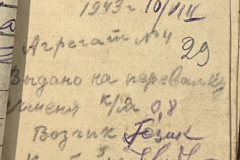 1943 г 10/VIII
Агрегат № 4
29
Выдано на перевалку
ячменя к/я 0,8
Возчик